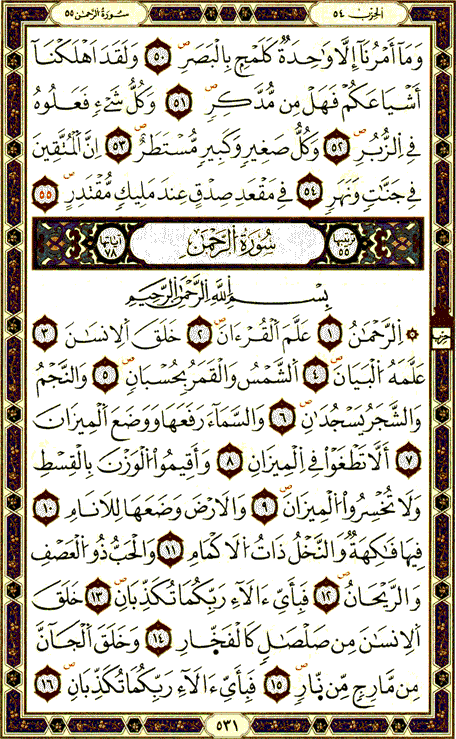 الحزب ٥٤
سورة الرحمن ٥٥
وَمَآ أَمْرُنَآ إِلَّا وَٰحِدَةٌ كَلَمْحٍۭ بِالْبَصَرِ ٥٠ وَلَقَدْ أَهْلَكْنَآ
أَشْيَاعَكُمْ فَهَلْ مِن مُّدَّكِرٍ ٥١ وَكُلُّ شَيْءٍ فَعَلُوهُ
فِي الزُّبُرِ ٥٢ وَكُلُّ صَغِيرٍ وَكَبِيرٍ مُّسْتَطَرٌ ٥٣ إِنَّ الْمُتَّقِينَ
فِي جَنَّٰتٍ وَنَهَرٍ ٥٤ فِي مَقْعَدِ صِدْقٍ عِندَ مَلِيكٍ مُّقْتَدِرٍ ٥٥
ترتيبها ٥٥ سُورَةُ الرَّحْمٰن آياتها ٧٨
بِسْمِ اللَّهِ الرَّحْمَٰنِ الرَّحِيمِ
الرَّحْمَٰنُ ١ عَلَّمَ الْقُرْءَانَ ٢ خَلَقَ الْإِنسَٰنَ ٣
حزب
عَلَّمَهُ الْبَيَانَ ٤ الشَّمْسُ وَالْقَمَرُ بِحُسْبَانٍ ٥ وَالنَّجْمُ
وَالشَّجَرُ يَسْجُدَانِ ٦ وَالسَّمَآءَ رَفَعَهَا وَوَضَعَ الْمِيزَانَ
٧ أَلَّا تَطْغَوْا فِي الْمِيزَانِ ٨ وَأَقِيمُوا الْوَزْنَ بِالْقِسْطِ
وَلَا تُخْسِرُوا الْمِيزَانَ ٩ وَالْأَرْضَ وَضَعَهَا لِلْأَنَامِ ١٠
فِيهَا فَٰكِهَةٌ وَالنَّخْلُ ذَاتُ الْأَكْمَامِ ١١ وَالْحَبُّ ذُو الْعَصْفِ
وَالرَّيْحَانُ ١٢ فَبِأَيِّ ءَالَآءِ رَبِّكُمَا تُكَذِّبَانِ ١٣ خَلَقَ
الْإِنسَٰنَ مِن صَلْصَٰلٍ كَالْفَخَّارِ ١٤ وَخَلَقَ الْجَآنَّ
مِن مَّارِجٍ مِّن نَّارٍ ١٥ فَبِأَيِّ ءَالَآءِ رَبِّكُمَا تُكَذِّبَانِ ١٦
٥٣١